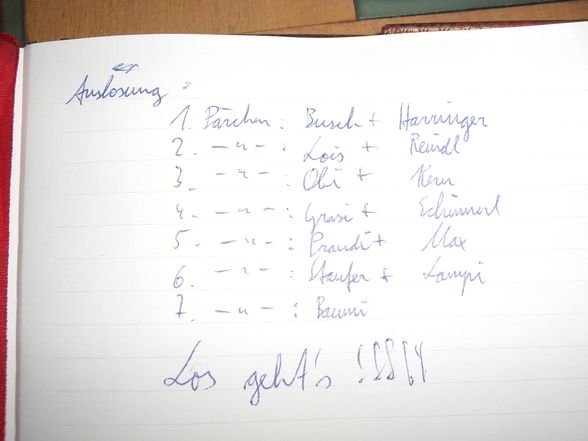 Auslosung:
1. Pärchen: Busch + Harringer
2. -"-: Lois + Reindl
3. -"-: Obi + Kern
4. -"-: Grasi +
5. -"-: Prandi + Max
6. -"-: Staufer + Lampi
7. -"-: Baumi
Los geht's !!!!!!